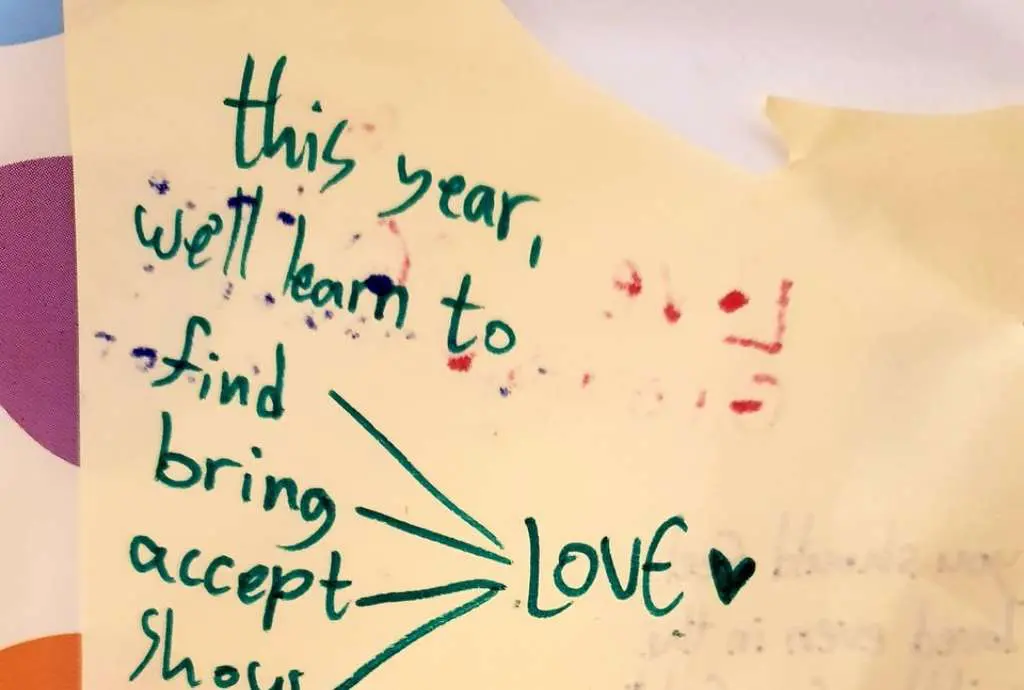 this year,
we'll learn to
find
bring
accept
show
LOVE ♥